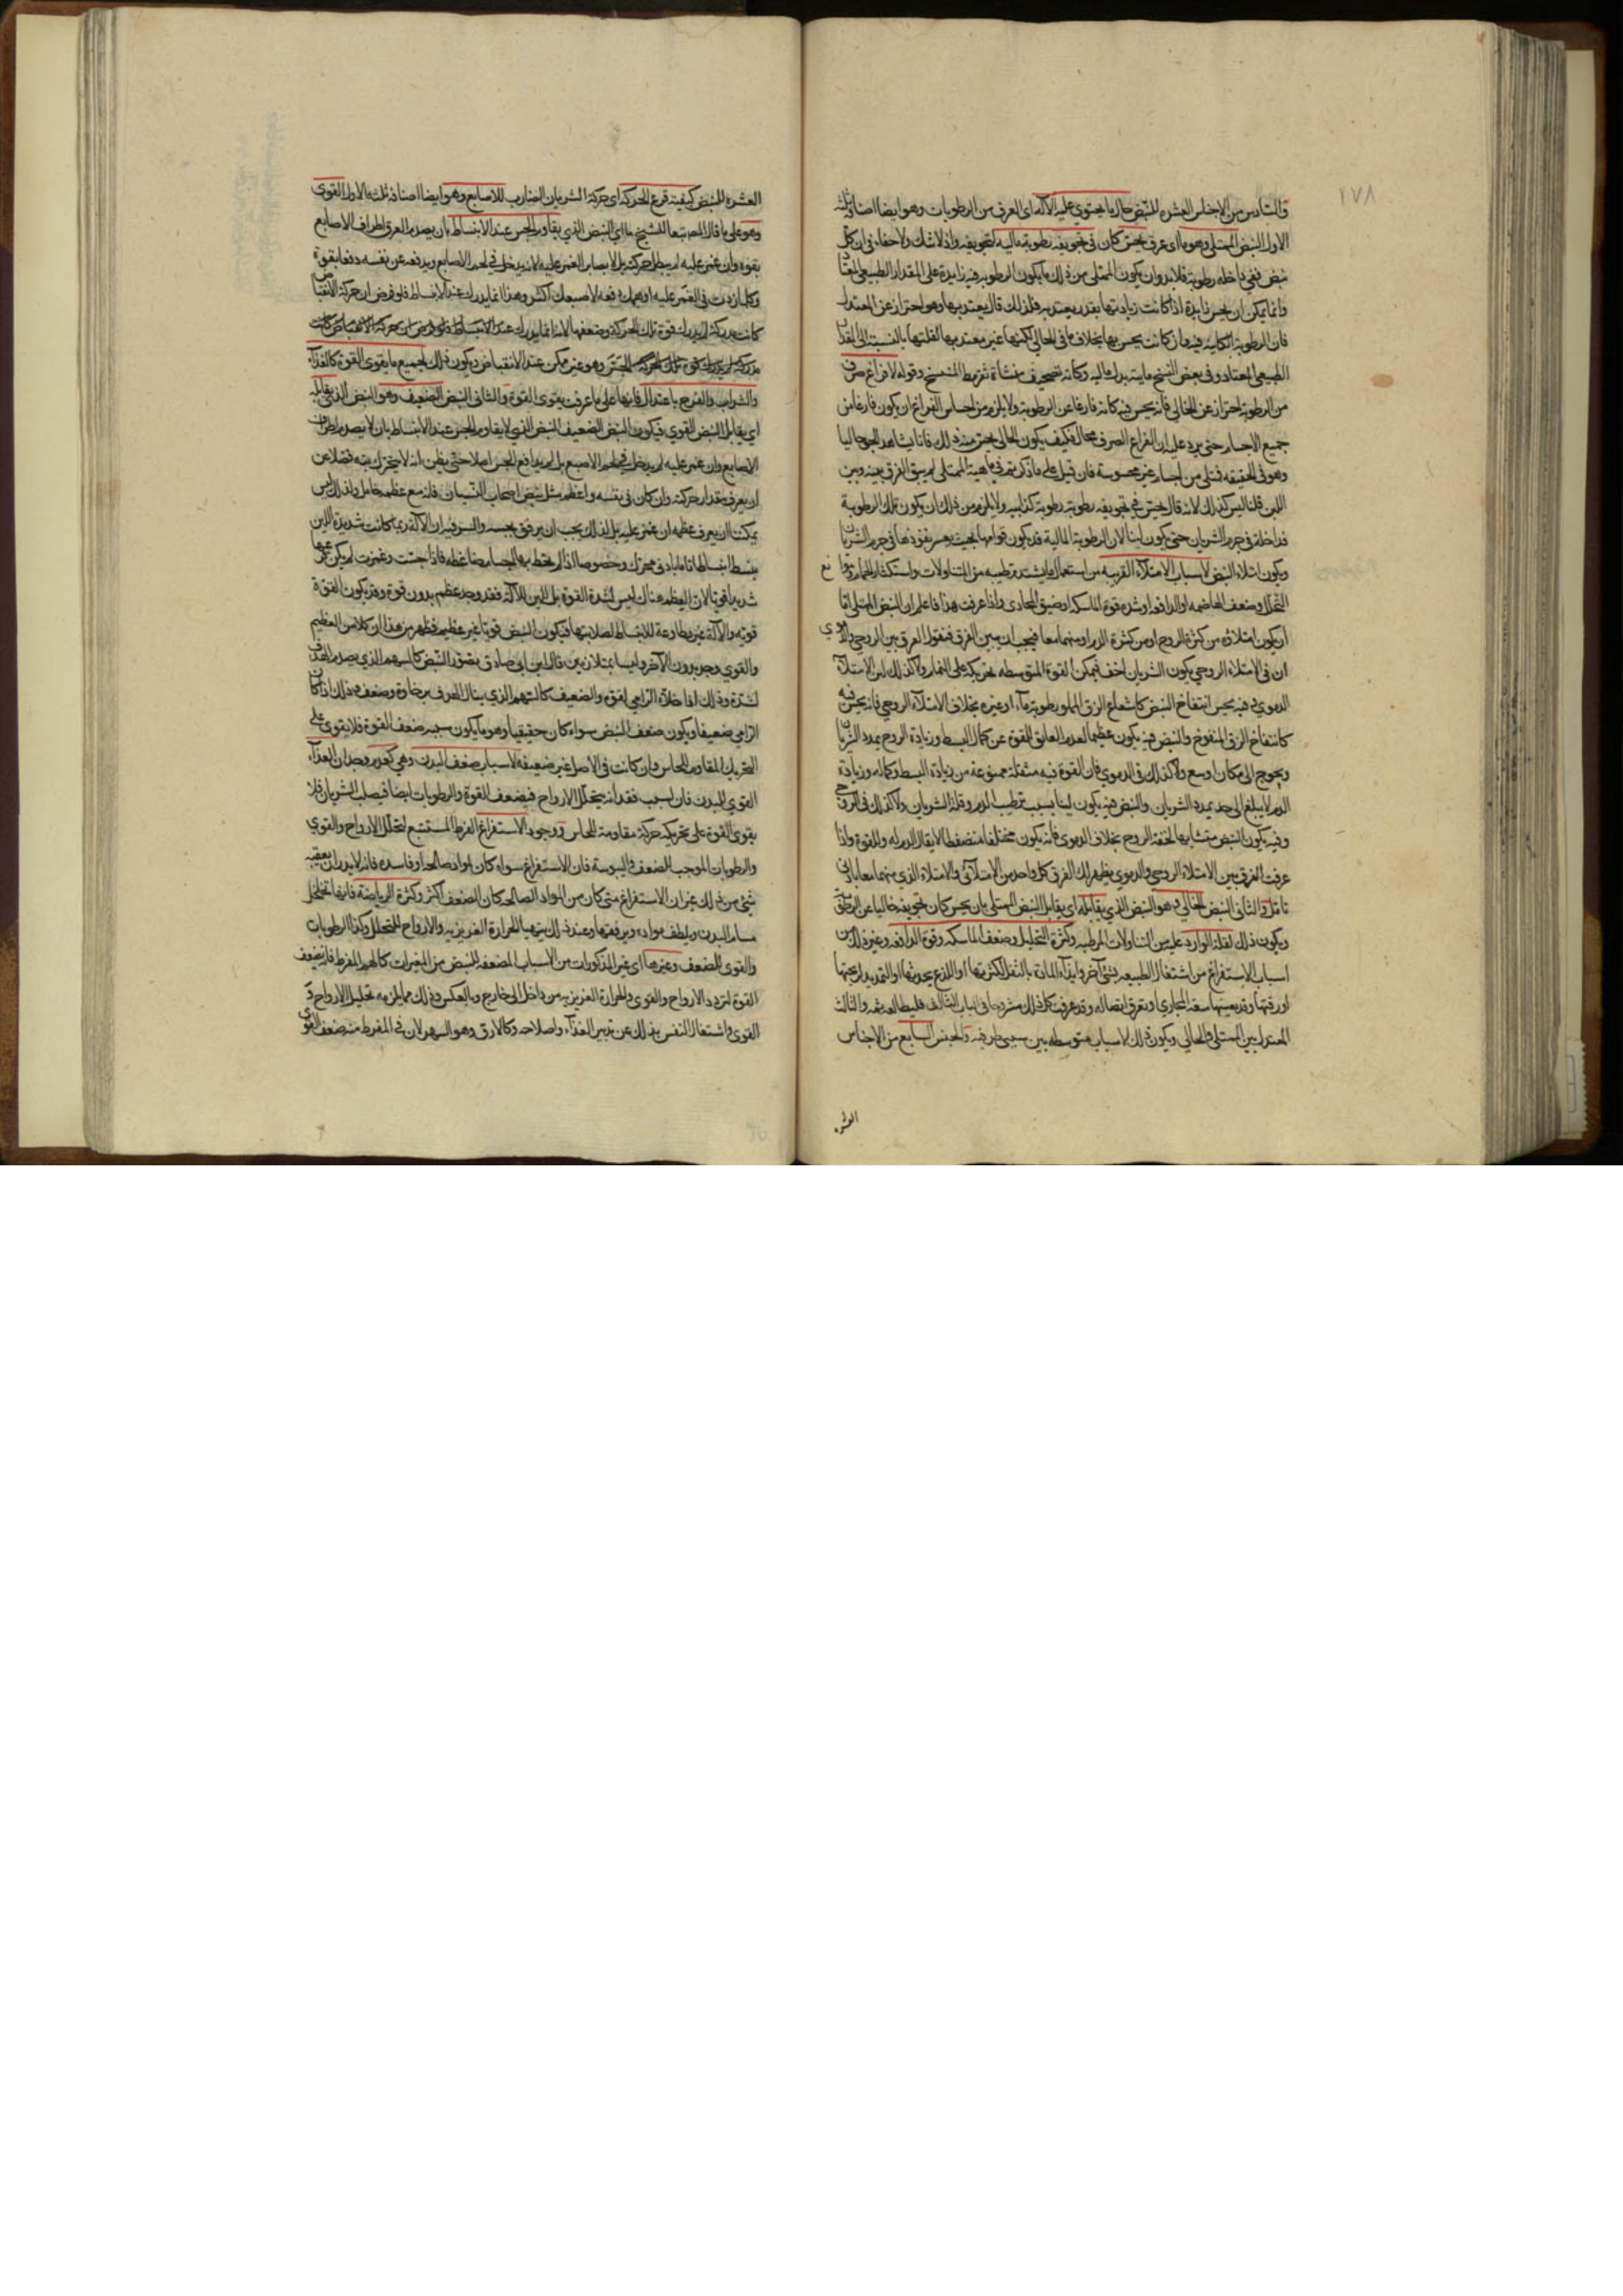 ١٧٨
والسادس من الاجناس العشره للنبض حال ما يحتوي عليه الآلة اى العرق من الرطوبات وهو ايضا اصنافه ثلثه
الاول النبض الممتلى وهو ما اى عرق يحس كان فى تجويفه رطوبة مالية لتجويفه واذ لا شك ولا خفاء فى ان كل
نبض ففى داخله رطوبة فلابد وان يكون الممتلى من ذلك ما يكون الرطوبه فيه زايدة على المقدار الطبيعي المعتاد
وانما يمكن ان يحس زايدة اذا كانت زيادتها بقدر يعتد به فلذلك قال يعتد بها وهو احتراز عن المعتدل
فان الرطوبة الكاينه فيه وان كانت يحس بها بخلاف ما فى الخالي لكنها غير معتد بها لقلتها بالنسبة الى المقدار
الطبيعي المعتاد وفى بعض النسخ مايية بدل مالية وكأنه تصحيف منشأه تفريط المنتسخ وقوله لا فراغ صرف
من الرطوبة احتراز عن الخالي فأنه يحس فيه كانه فارغا عن الرطوبة ولا يلزم من احساس الفراغ ان يكون فارغا من
جميع الاجسام حتى يرد عليه ان الفراغ الصرف محال فكيف يكون الخالي يحس منه ذلك فانا نشاهد الجو خاليا
وهو فى الحقيقه ممتلى من اجسام غير محسوسة فان قيل على ما ذكرتم فى ماهية الممتلى لم يبق الفرق بينه وبين
اللين قلنا ليس كذلك لانه قال يحس فى تجويفه رطوبة كذاييه ولا يلزم من ذلك ان يكون تلك الرطوبة
نداخلة فى جرم الشريان حتى يكون لينا لان الرطوبة المالية قد يكون قوامها بحيث يعسر نفوذها فى جرم الشريان
ويكون امتلاء النبض لاسباب الامتلاء القريبه من استعمال ما يشتد ترطيبه من المتناولات واستكثار الحمام
التحلل وضعف الهاضمه او الدافعه او شده قوة الماسكه او ضيق المجارى واذا عرفت هذا فاعلم ان النبض الممتلى اما
ان يكون امتلاؤه من كثرة الروح او من كثرة الدم او منهما معا فيجب ان يبين الفرق فنقول الفرق بين الروحي والدموي
ان فى الامتلاء الروحي يكون الشريان اخف فيمكن القوة المتوسطه تحريكه على التمام ولا كذلك فى الامتلاء
الدموي وفيه يحس انتفاخ النبض كامتلاء الزق المملو رطوبة ماء او غيره بخلاف الامتلاء الروحي فانه يحس فيه
كانتفاخ الزق المنفوخ والنبض فيه يكون عظيما لعدم العايق للقوة عن كمال البسط وزيادة الروح بمدد الشريان
ويحوج الى مكان اوسع ولا كذلك فى الدموي فان القوة فيه مثقلة ممنوعة من زيادة البسط وكماله وزيادة
الدم لا يبلغ الى حد يمدد الشريان والنبض فيه يكون لينا بسبب ترطيب الدم وقلة الشريان ولا كذلك فى الروحي
وفيه يكون النبض متشابها لخفة الروح بخلاف الدموى فأنه يكون مختلفا منضغطا لاثقال الدم له وللقوة واذا
عرفت الفرق بين الامتلاء الروحي والدموي يظهر لك الفرق كل واحد من الامتلائين والامتلاء الذي منهما معا بادنى
تامل والثانى النبض الخالي وهو النبض الذي يقابله اى يقابل النبض الممتلى بان يحس كان تجويفه خاليا عن الرطوبة
ويكون ذلك لقلة الوارد عليه من المتناولات المرطبه وكثرة التحليل وضعف الماسكه وقوة الدافعه وغير ذلك من
اسباب الاستفراغ من اشتغال الطبيعه بشئ آخر وايذاء المادة بالثقل لكثرتها او اللذع بحدتها او التمديد لريحيتها
او رقتها وتعينها سعة المجاري او تفرق اتصاله وقد عرفت كل ذلك مشروحا فى الباب الثالث فليطالعه ثمه والثالث
المعتدل بين الممتلى والخالي ويكون ذلك لاسباب متوسطه بين سببى طرفيه والجنس السابع من الاجناس
العشره
العشره للنبض كيفية قرع الحركة اى حركة الشريان الضارب للاصابع وهو ايضا اصنافه ثلثه الاول القوى
وهو على ما قال المصـ تبعا للشيخ ما اى النبض الذي يقاوم الجس عند الانبساط بان يصدم العرق اطراف الاصابع
بقوة وان غمز عليه لم يبطل حركته بل لا يصابر الغمز عليه لانه يدخل فى لحم الاصابع ويدفعه عن نفسه دفعا بقوة
وكلما زدت فى الغمز عليه اوهمك دفعه لاصبعك اكثر وهذا انما يدرك عند الانبساط فلو فرض ان حركة الانقباض
كانت مدركة لم يدرك قوة تلك الحركة وضعفها لانه انما يدرك عند الانبساط فلو فرض ان حركة الانقباض كانت
مدركة لم يدرك قوة تلك الحركة الجس وهو غير ممكن عند الانقباض ويكون ذلك لجميع ما يقوى القوة كالغذاء
والشراب والفرح باعتدال فانها على ما عرفت يقوى القوة والثانى النبض الضعيف وهو النبض الذى يقابله
اي يقابل النبض القوي فيكون النبض الضعيف النبض الذي لا يقاوم الجس عند الانبساط بان لا يصدم اطراف
الاصابع وان غمز عليه لم يدخل فى لحم الاصبع بل لم يدافع الجس اصلا حتى يظن انه لا يتحرك بته فضلا عن
ان يعرف مقدار حركته وان كان فى نفسه واعظم مثل نبض اصحاب النسيان فانه مع عظمه خامل ولذلك ليس
يمكن ان يعرف عظمه ان غمز عليه بل لذلك يجب ان يرفق بجسه والسر فيه ان الآلة ربما كانت شديدة اللين
ينبسط انبساطا تاما بادنى محرك وخصوصا اذا لم يختط بها اجسام ضاغطه فاذا جست وغمزت لم يكن
شديدا قويا لان العظم هناك ليس لشدة القوة بل للين الآلة فقد وجد عظم بدون قوة وقد يكون القوة
قويه والآلة غير مطاوعة للانبساط لصلابتها فيكون النبض قويا غير عظيم فظهر من هذا ان كلا من العظيم
والقوي وجد بدون الآخر وليسا بمتلازمين قال ابن ابي صادق يتصور النبض كالسهم الذي يصدم الهدف
لشدة وذلك اذا خلاه الرامي لقوة والضعيف كالسهم الذي ينال الهدف برخاوة وضعف وذلك اذا كان
الرامي ضعيفا ويكون ضعف النبض سواء كان حقيقيا وهو ما يكون سببه ضعف القوة فلا يقوى على
التحريك المقاوم للحاس وان كانت فى الاصل غير ضعيفة لاسباب ضعف البدن وهي كعدم وجدان الغذاء
القوي للبدن فان بسبب فقدانه يتحلل الارواح فيضعف القوة والرطوبات ايضا فيصلب الشريان فلا
يقوى القوة على تحريكه حركة مقاومة للحاس ووجود الاستفراغ المفرط المستتبع لتحلل الارواح والقوي
والرطوبات الموجب للضعف واليبوسة فان الاستفراغ سواء كان لمواد صالحه او فاسده فانه لابد ان يعقبه
شئ من ذلك غير ان الاستفراغ متى كان من المواد الصالحه كان الضعف اكثر وكثرة الرياضة فانها تخلخل
مسام البدن ويلطف مواده ويرققها وعند ذلك يتهيا للحرارة الغريزيه والارواح للتحلل وكذا الرطوبات
والقوى للضعف وغيرها اى غير المذكورات من الاسباب المضعفه للنبض من المغيرات كالهم المفرط فانه يضعف
القوة لتردد الارواح والقوى والحرارة الغريزيه من داخل الى خارج وبالعكس وذلك مما يلزمه تحليل الارواح و
القوى واشتغال النفس بذلك عن تدبير الغذاء واصلاحه وكالارق وهو السهر لان فى المفرط منه ضعف القوى